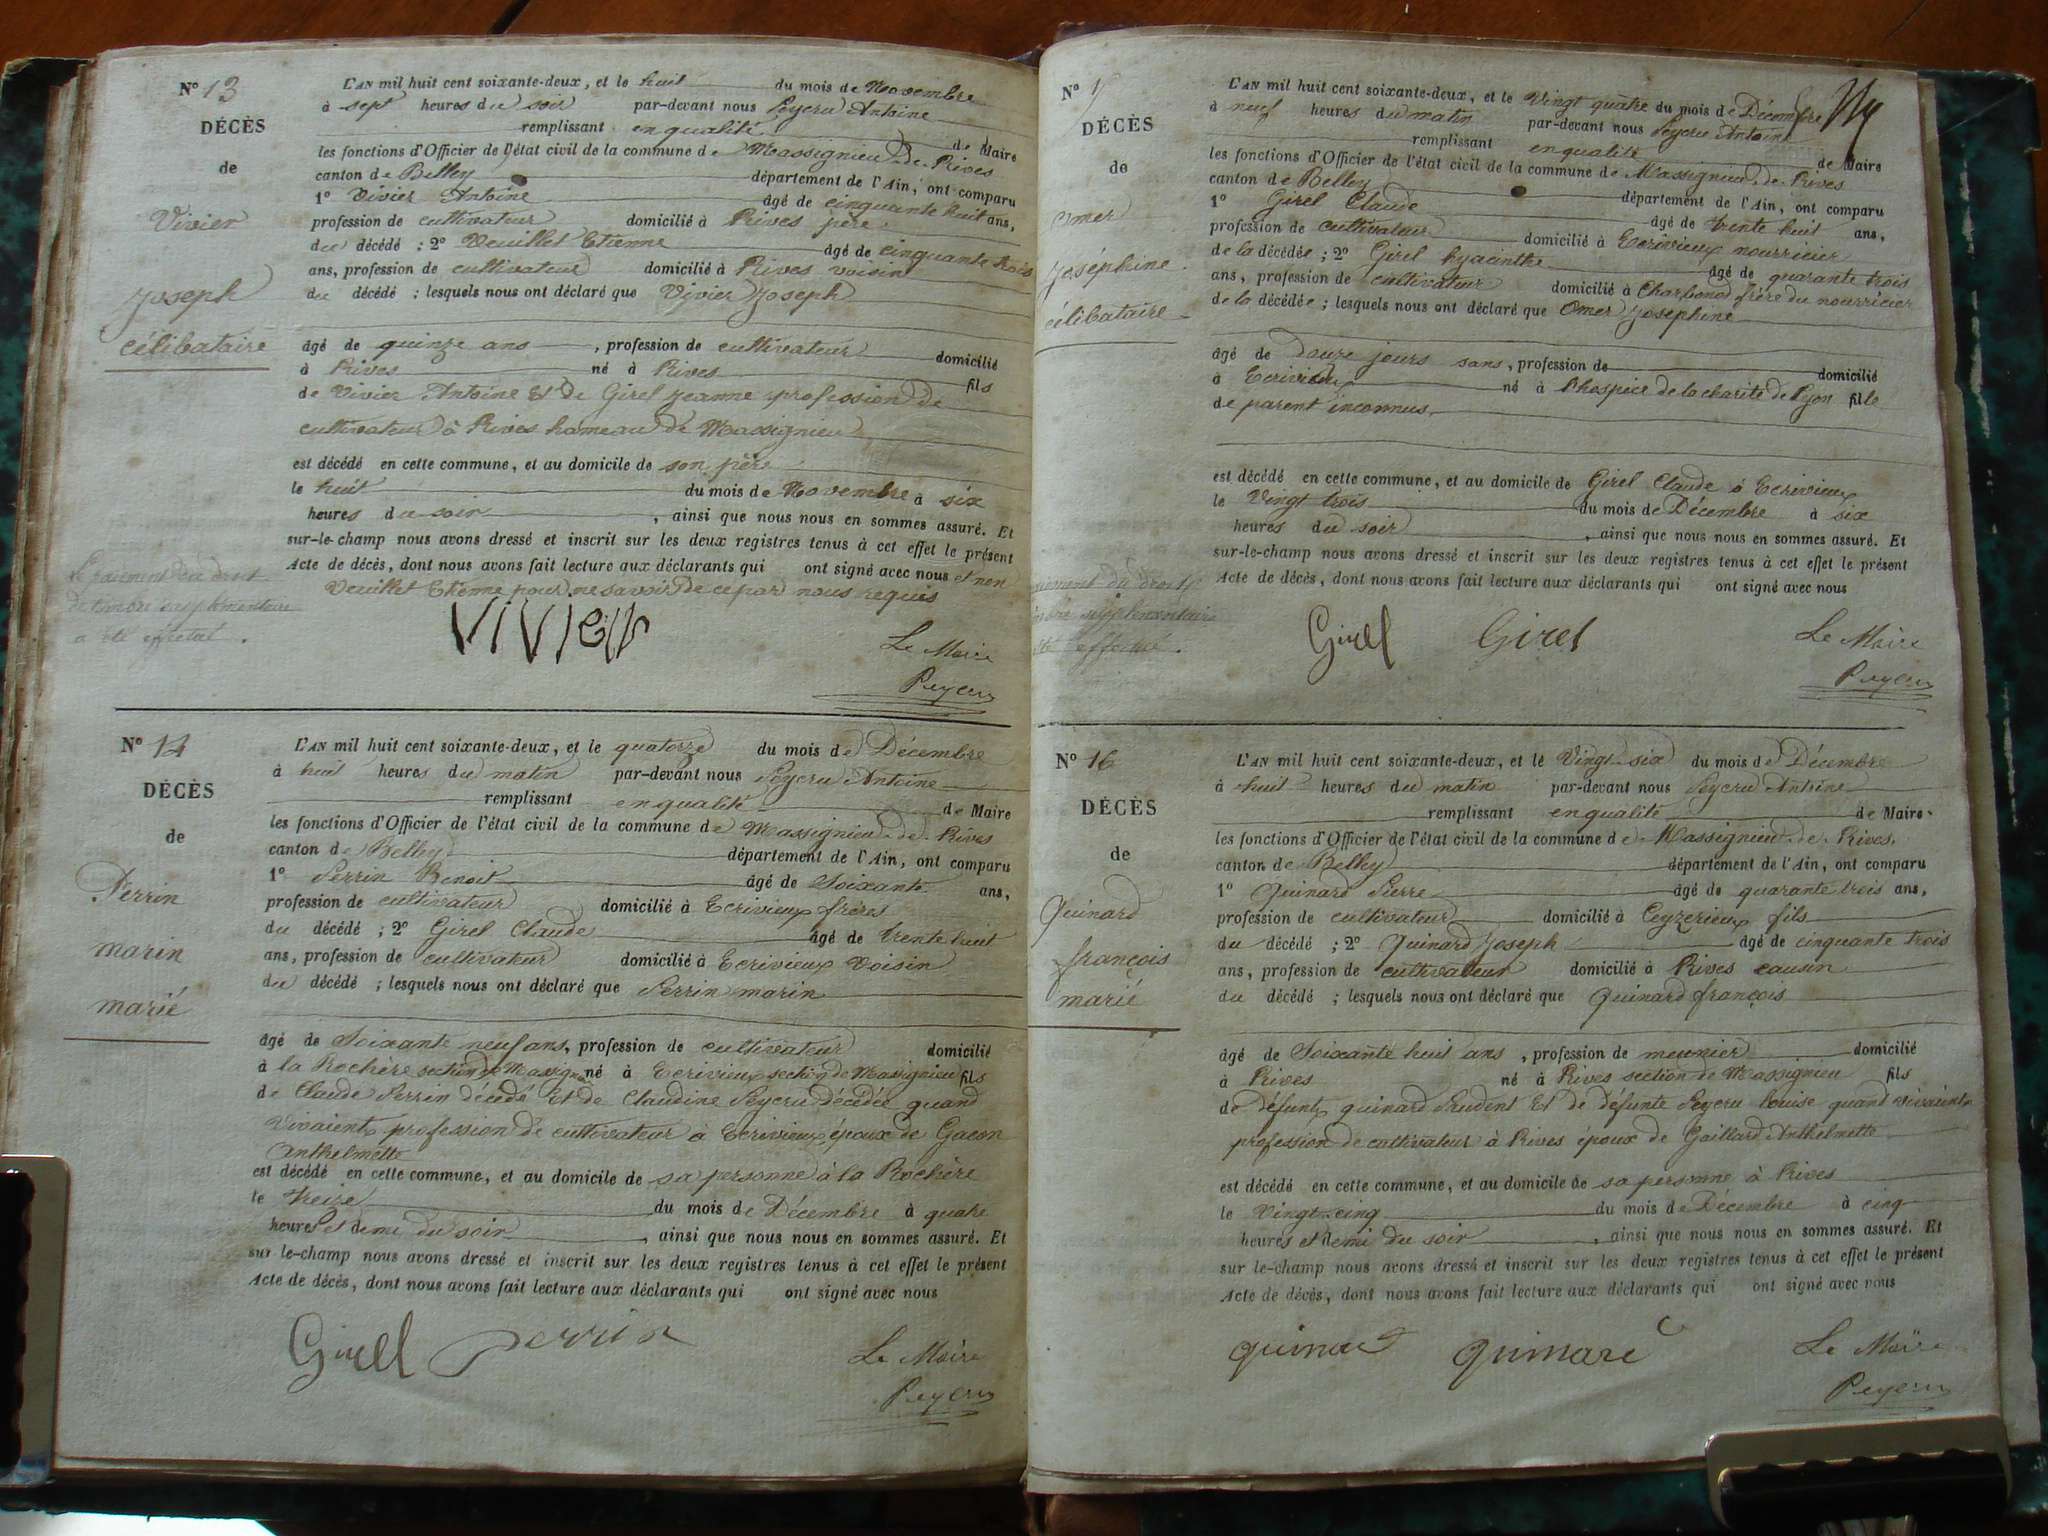 N° 13
DÉCÈS
de
Vivier
Joseph
célibataire
L'AN mil huit cent soixante-deux, et le huit du mois de Novembre
à sept heures du soir par-devant nous Peycru Antoine
remplissant en qualité de Maire
les fonctions d'Officier de l'état civil de la commune de Massignieu de Rives
canton de Belley département de l'Ain, ont comparu
1° Vivier Antoine âgé de cinquante huit ans,
profession de cultivateur domicilié à Rives père
du décédé ; 2° Veuillet Etienne âgé de cinquante trois
ans, profession de cultivateur domicilié à Rives voisin
du décédé ; lesquels nous ont déclaré que Vivier Joseph
âgé de quinze ans, profession de cultivateur domicilié
à Rives né à Rives fils
de Vivier Antoine Et de Girel Jeanne profession de
cultivateur à Rives hameau de Massignieu
est décédé en cette commune, et au domicile de son père
le huit du mois de Novembre à six
heures du soir, ainsi que nous nous en sommes assuré. Et
sur-le-champ nous avons dressé et inscrit sur les deux registres tenus à cet effet le présent
Acte de décès, dont nous avons fait lecture aux déclarants qui ont signé avec nous et non
Veuillet Etienne pour ne savoir de ce par nous requis
Le paiement du droit
de timbre supplémentaire
a été effectué.
Vivier
Le Maire
Peycru
N° 14
DÉCÈS
de
Perrin
marin
marié
L'AN mil huit cent soixante-deux, et le quatorze du mois de Décembre
à huit heures du matin par-devant nous Peycru Antoine
remplissant en qualité de Maire
les fonctions d'Officier de l'état civil de la commune de Massignieu de Rives
canton de Belley département de l'Ain, ont comparu
1° Perrin Benoit âgé de Soixante ans,
profession de cultivateur domicilié à Ecrivieux frères
du décédé ; 2° Girel Claude âgé de trente huit
ans, profession de cultivateur domicilié à Ecrivieux Voisin
du décédé ; lesquels nous ont déclaré que Perrin marin
âgé de Soixante neuf ans, profession de cultivateur domicilié
à la Rochère section de Massign né à Ecrivieux section de Massignieu fils
de Claude Perrin décédé Et de Claudine Peycru décédée quand
Vivaient profession de cultivateur à Ecrivieux époux de Gacon
Anthelmette
est décédé en cette commune, et au domicile de sa personne à la Rochère
le treize du mois de Décembre à quatre
heures et demi du soir, ainsi que nous nous en sommes assuré. Et
sur le-champ nous avons dressé et inscrit sur les deux registres tenus à cet effet le présent
Acte de décès, dont nous avons fait lecture aux déclarants qui ont signé avec nous
Girel Perrin
Le Maire
Peycru
N° 1
DÉCÈS
de
Omer
Joséphine
célibataire
L'AN mil huit cent soixante-deux, et le Vingt quatre du mois de Décembre
à neuf heures du matin par-devant nous Peycru Antoine
remplissant en qualité de Maire
les fonctions d'Officier de l'état civil de la commune de Massignieu de Rives
canton de Belley département de l'Ain, ont comparu
1° Girel Claude âgé de trente huit ans,
profession de cultivateur domicilié à Ecrivieux nourricier
de la décédée ; 2° Girel hyacinthe âgé de quarante trois
ans, profession de cultivateur domicilié à Charbonod frère du nourricier
de la décédée ; lesquels nous ont déclaré que Omer Joséphine
âgé de douze jours sans, profession de domicilié
à Ecrivieux né à l'hospice de la charité de Lyon fille
de parent inconnus
est décédé en cette commune, et au domicile de Girel Claude à Ecrivieux
le Vingt trois du mois de Décembre à six
heures du soir, ainsi que nous nous en sommes assuré. Et
sur-le-champ nous avons dressé et inscrit sur les deux registres tenus à cet effet le présent
Acte de décès, dont nous avons fait lecture aux déclarants qui ont signé avec nous
du droit
supplémentaire
effectué.
Girel Girel
Le Maire
Peycru
N° 16
DÉCÈS
de
Quinard
françois
marié
L'AN mil huit cent soixante-deux, et le Vingt-six du mois de Décembre
à huit heures du matin par-devant nous Peycru Antoine
remplissant en qualité de Maire
les fonctions d'Officier de l'état civil de la commune de Massignieu de Rives.
canton de Belley département de l'Ain, ont comparu
1° Quinard Pierre âgé de quarante trois ans,
profession de cultivateur domicilié à Ceyzerieux fils
du décédé ; 2° Quinard Joseph âgé de cinquante trois
ans, profession de cultivateur domicilié à Rives causin
du décédé ; lesquels nous ont déclaré que Quinard françois
âgé de Soixante huit ans, profession de meunier domicilié
à Rives né à Rives section de Massignieu fils
de défunt quinard Prudent Et de défunte Peycru Louise quand vivaient
profession de cultivateur à Rives époux de Gaillard Anthelmette
est décédé en cette commune, et au domicile de sa personne à Rives
le Vingt-cinq du mois de Décembre à cinq
heures et demi du soir, ainsi que nous nous en sommes assuré. Et
sur le-champ nous avons dressé et inscrit sur les deux registres tenus à cet effet le présent
Acte de décès, dont nous avons fait lecture aux déclarants qui ont signé avec nous
quinard quinard
Le Maire
Peycru